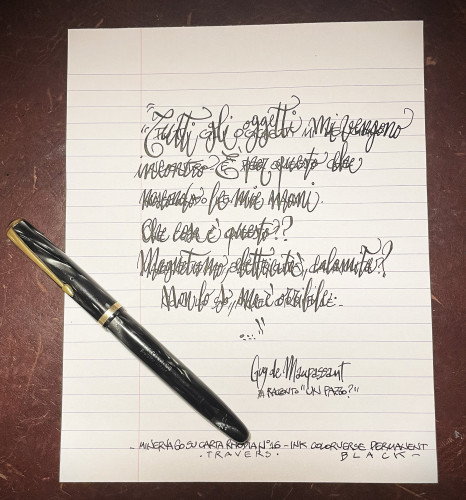 "Tutti gli oggetti mi vengono
incontro? È per questo che
nascondo le mie mani.
Che cosa è questo??
Magnetismo, elettricità, calamita?
Non lo so, ma è orribile.
..."
Guy de Maupassant
# RACCONTO "UN PAZZO?"
- MINERVA 60 SU CARTA RHODIA N°16 - INK COLORVERSE PERMANENT
· TRAVERS · BLACK -